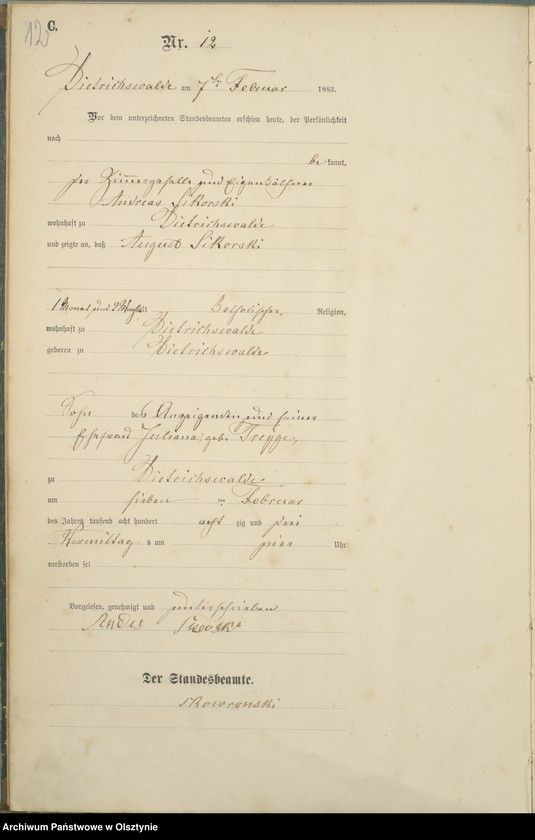 12
C.
Nr. 12
Dietrichswalde am 7ten Februar 1883.
Vor dem unterzeichneten Standesbeamten erschien heute, der Persönlichkeit
nach
be kannt,
der Zimmergeselle und Eigenkäthner
Andreas Sikorski
wohnhaft zu Dietrichswalde
und zeigte an, daß August Sikorski
1 Monat und 2 alt katholischer Religion,
wohnhaft zu Dietrichswalde
geboren zu Dietrichswalde
Sohn des Anzeigenden und seiner
Ehefrau Juliana, geb.
zu Dietrichswalde
am sieben ten Februar
des Jahres tausend acht hundert acht zig und drei
Vormittag s um vier Uhr
verstorben sei
Vorgelesen, genehmigt und unterschrieben
Der Standesbeamte.
Skowronski
Archiwum Państwowe w Olsztynie